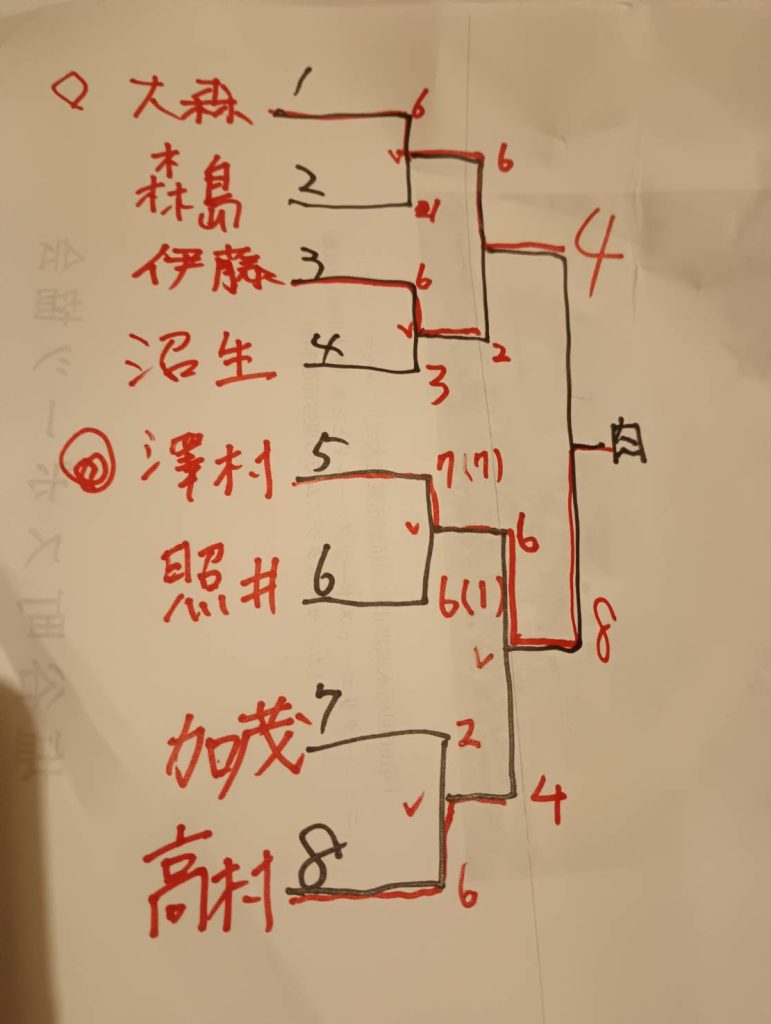 大森 1 6
6
森島 2
4
伊藤 3 6
沼生 4 3
2
澤村 5 7(7)
6
照井 6 6(1)
8
加茂 7 2
4
高村 8 6